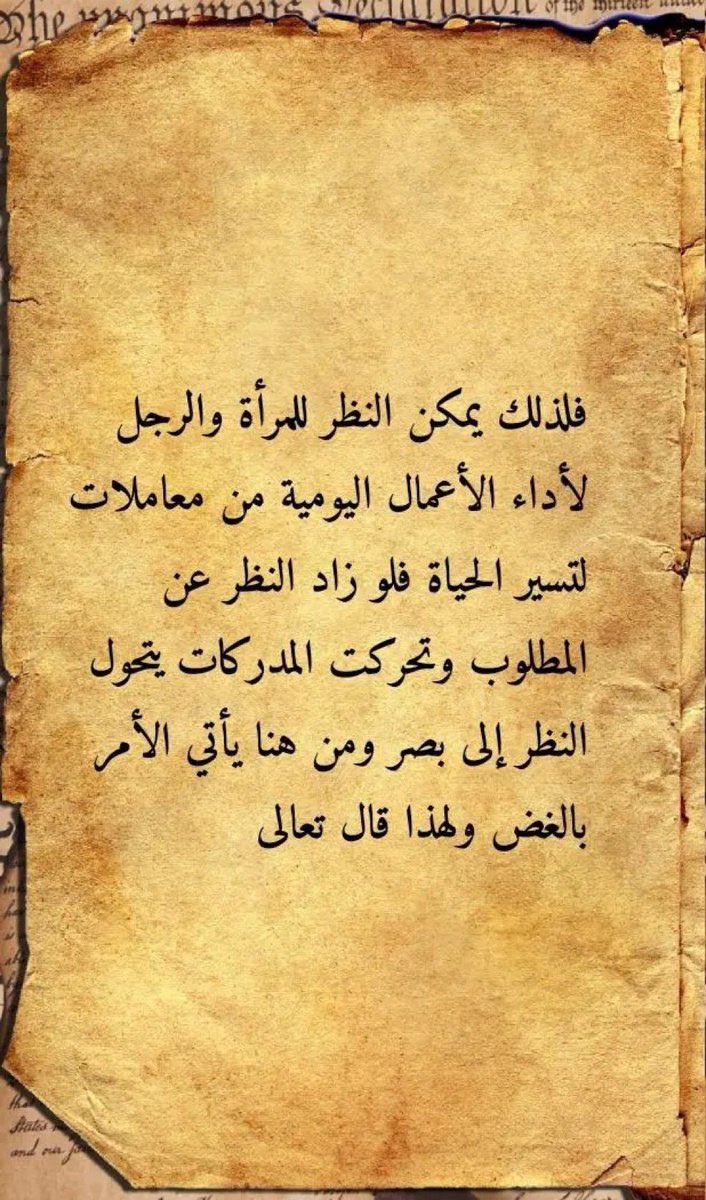 The unanimous Declaration of the thirteen united
فلذلك يمكن النظر للمرأة والرجل
لأداء الأعمال اليومية من معاملات
لتسير الحياة فلو زاد النظر عن
المطلوب وتحركت المدركات يتحول
النظر إلى بصر ومن هنا يأتي الأمر
بالغض ولهذا قال تعالى
that
States
and our